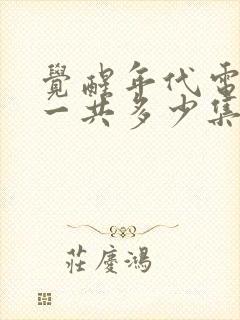 覺醒年代電
一共多少集
莊慶鴻